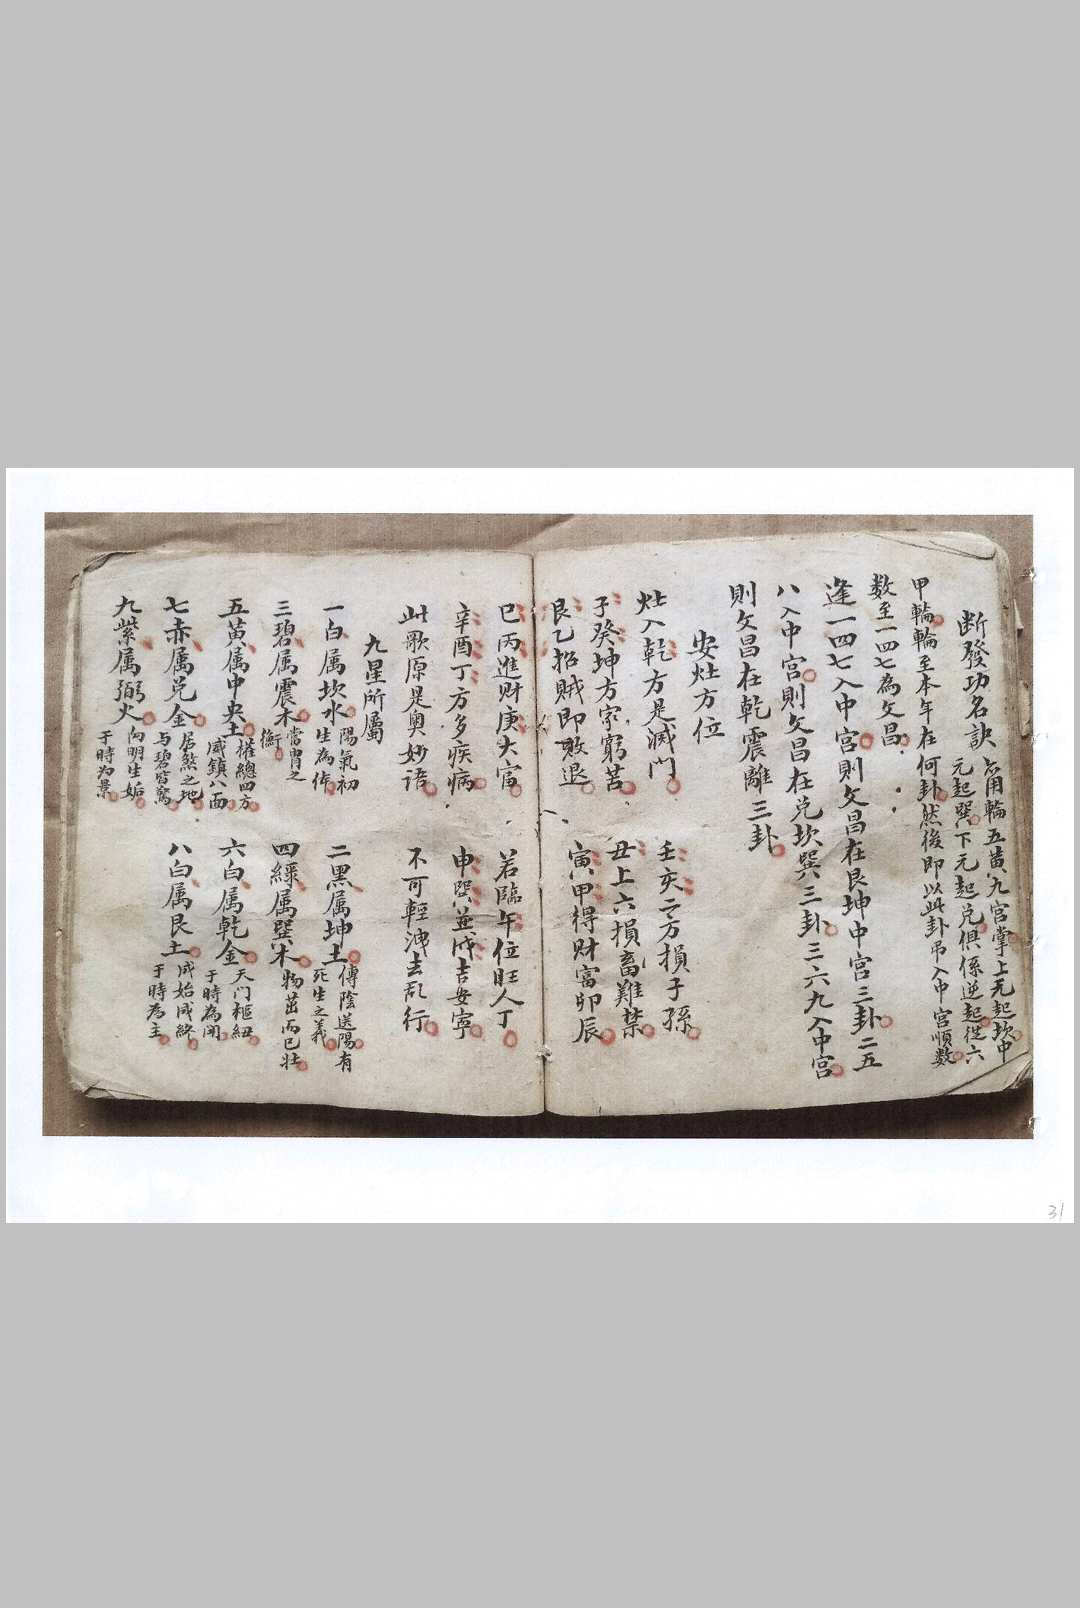 断發功名訣 六用輪五黄九宫掌上元起坎中
元起巽下元起兑俱係逆起從六
甲輪輪至本年在何卦然後即以此卦吊入中宫順數
数至一四七為文昌
逢一四七入中宫則文昌在艮坤中宫三卦二五
八入中宫則文昌在兑坎巽三卦三六九入中宫
則文昌在乾震離三卦
安灶方位
灶入乾方是滅門 壬亥二方損子孫
子癸坤方家窮苦 丑上六損畜難禁
艮乙招賊即敗退 寅甲得财富卯辰
巳丙進财庚大富 若臨午位旺人丁
辛酉丁方多疾病 申巽並戌吉安寧
此歌原是奥妙語 不可輕洩去乱行
九星所屬
一白属坎水 陽氣初生為休 二黑属坤土 傳陰送陽有死生之義
三碧属震木 當胃之衝 四綠属巽木 物茁而已壮
五黄属中央土 權總四方威鎮八面 六白属乾金 天门樞紐于時為開
七赤属兑金 居煞之地与碧皆驚 八白属艮土 成始成終于時為主
九紫属弼火 向明生姤于時為景
31